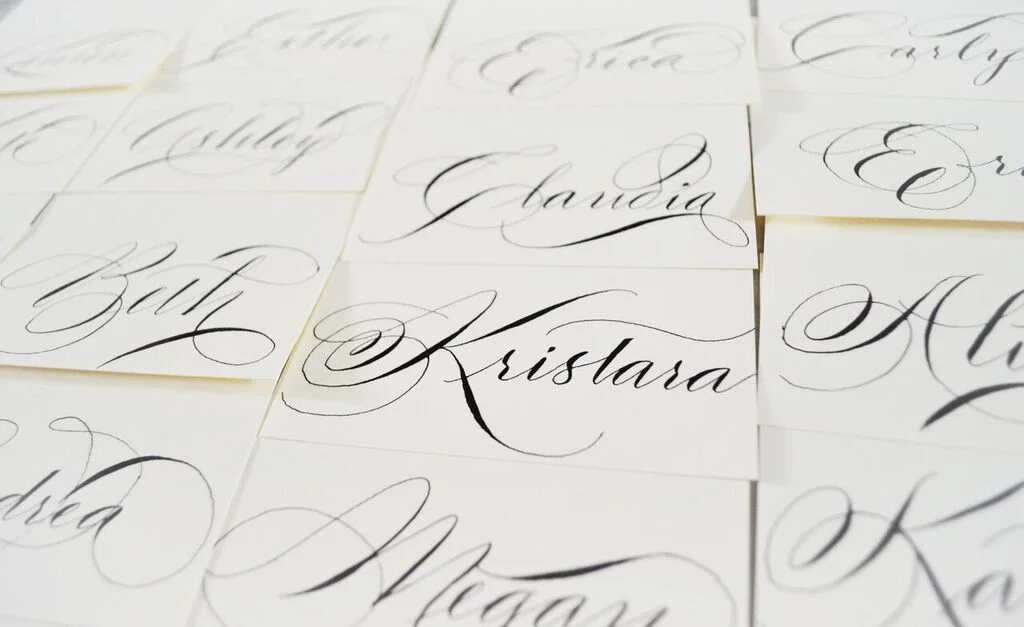 Esther
Erica
Carly
Ashley
Claudia
Er
Beth
Kristara
Ali
drea
Megan
Ka